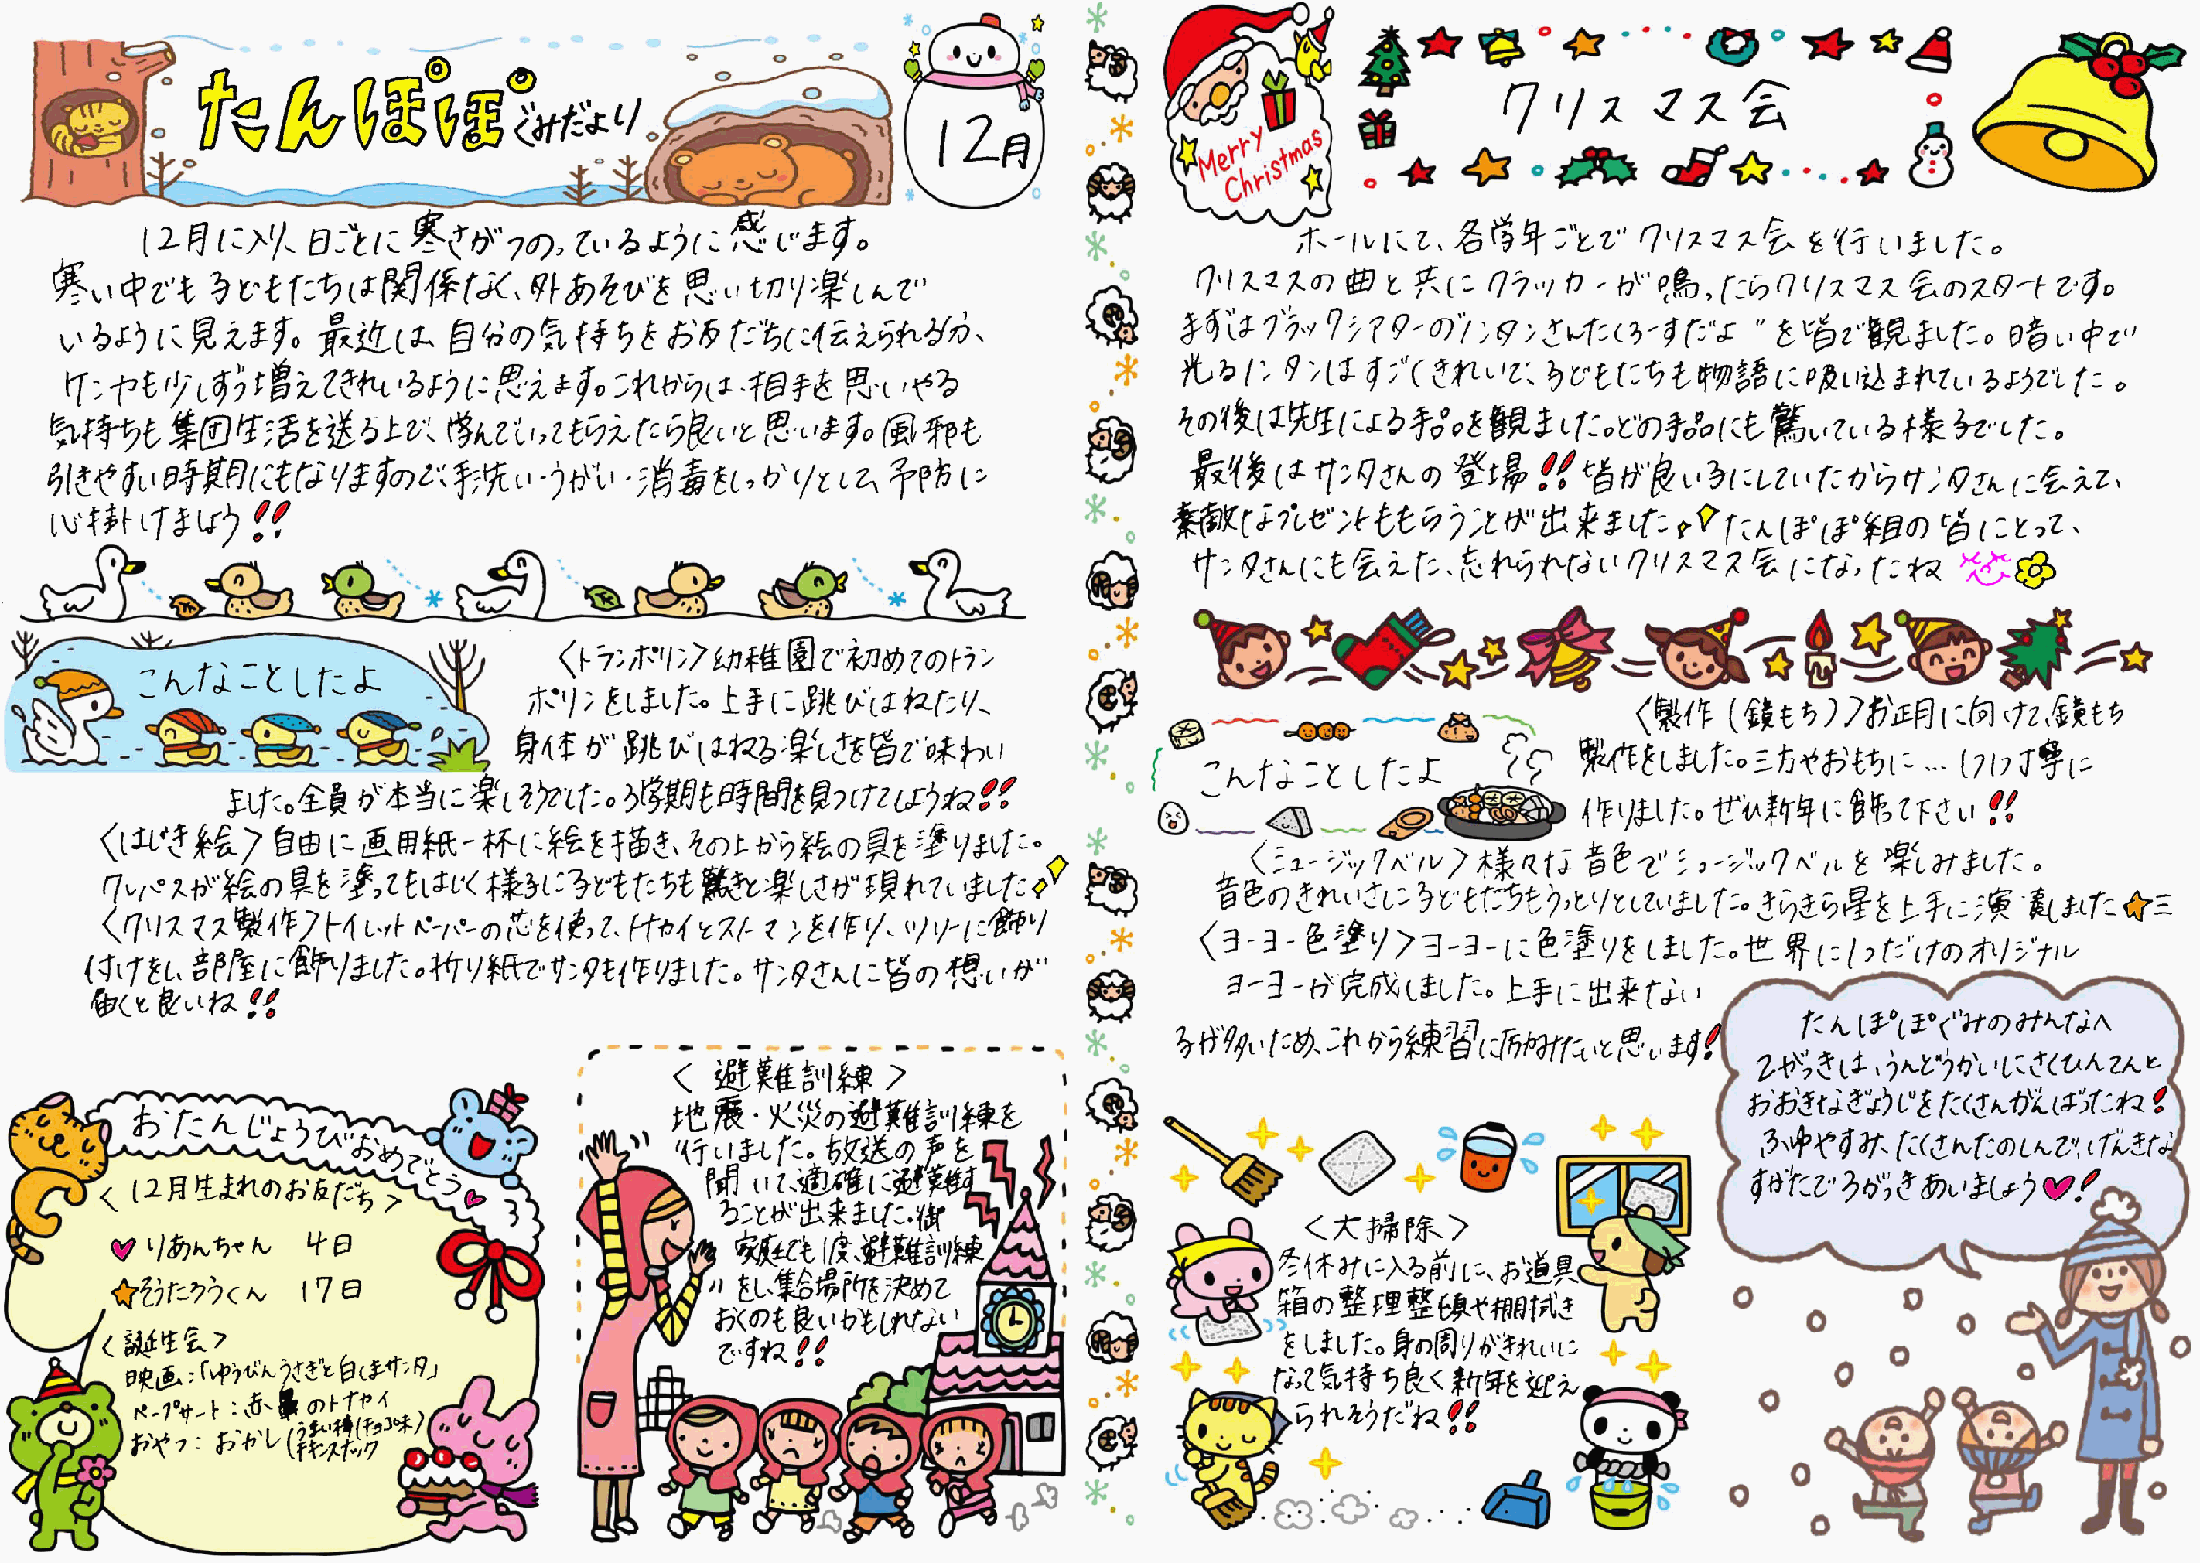 たんぽぽぐみだより
12月
12月に入り、日ごとに寒さがつのっているように感じます。
寒い中でも子どもたちは関係なく、外あそびを思い切り楽しんで
いるように見えます。最近は、自分の気持ちをお友だちに伝えられる分、
ケンカも少しずつ増えてきているように思えます。これからは、相手を思いやる
気持ちも集団生活を送る上で、学んでいってもらえたら良いと思います。風邪も
引きやすい時期にもなりますので、手洗い・うがい・消毒をしっかりとして、予防に
心掛けましょう!!
こんなことしたよ
〈トランポリン〉幼稚園で初めてのトラン
ポリンをしました。上手に跳びはねたり、
身体が跳びはねる楽しさを皆で味わい
ました。全員が本当に楽しそうでした。3学期も時間を見つけてしようね!!
〈はじき絵〉自由に画用紙一杯に絵を描き、その上から絵の具を塗りました。
クレパスが絵の具を塗ってもはじく様子に子どもたちも驚きと楽しさが現れていました
〈クリスマス製作〉トイレットペーパーの芯を使って、トナカイとスノーマンを作り、ツリーに飾り
付けをし、部屋に飾りました。折り紙でサンタも作りました。サンタさんに皆の想いが
届くと良いね!!
おたんじょうびおめでとう
〈12月生まれのお友だち〉
りあんちゃん 4日
そうたろうくん 17日
〈誕生会〉
映画:「ゆうびんうさぎと白くまサンタ」
ペープサート:赤鼻のトナカイ
おやつ:おかし(うまい棒(チョコ味)
チキンスナック
〈避難訓練〉
地震・火災の避難訓練を
行いました。放送の声を
聞いて、適確に避難す
ることが出来ました。御
家庭でも1度、避難訓練
をし、集合場所を決めて
おくのも良いかもしれない
ですね!!
Merry
Christmas
クリスマス会
ホールにて、各学年ごとでクリスマス会を行いました。
クリスマスの曲と共にクラッカーが鳴ったらクリスマス会のスタートです。
まずはブラックシアターの"ノンタンさんたくろーすだよ"を皆で観ました。暗い中で
光るノンタンはすごくきれいで、子どもたちも物語に吸い込まれているようでした。
その後は先生による手品を観ました。どの手品にも驚いている様子でした。
最後はサンタさんの登場!!皆が良い子にしていたからサンタさんに会えて、
素敵なプレゼントももらうことが出来ましたたんぽぽ組の皆にとって、
サンタさんにも会えた、忘れられないクリスマス会になったね
こんなことしたよ
〈製作(鏡もち)〉お正月に向けて、鏡もち
製作をしました。三方やおもちに…1つ1つ丁寧に
作りました。ぜひ新年に飾って下さい!!
〈ミュージックベル〉様々な音色でミュージックベルを楽しみました。
音色のきれいさに子どもたちもうっとりとしていました。きらきら星を上手に演奏しました
〈ヨーヨー色塗り〉ヨーヨーに色塗りをしました。世界に1つだけのオリジナル
ヨーヨーが完成しました。上手に出来ない
子が多いため、これから練習に励みたいと思います!
〈大掃除〉
冬休みに入る前に、お道具
箱の整理整頓や棚拭き
をしました。身の周りがきれいに
なって気持ち良く新年を迎え
られそうだね!!
たんぽぽぐみのみんなへ
2がっきは、うんどうかいにさくひんてんと
おおきなぎょうじをたくさんがんばったね!
ふゆやすみ、たくさんたのしんで、げんきな
すがたで3がっきあいましょう!